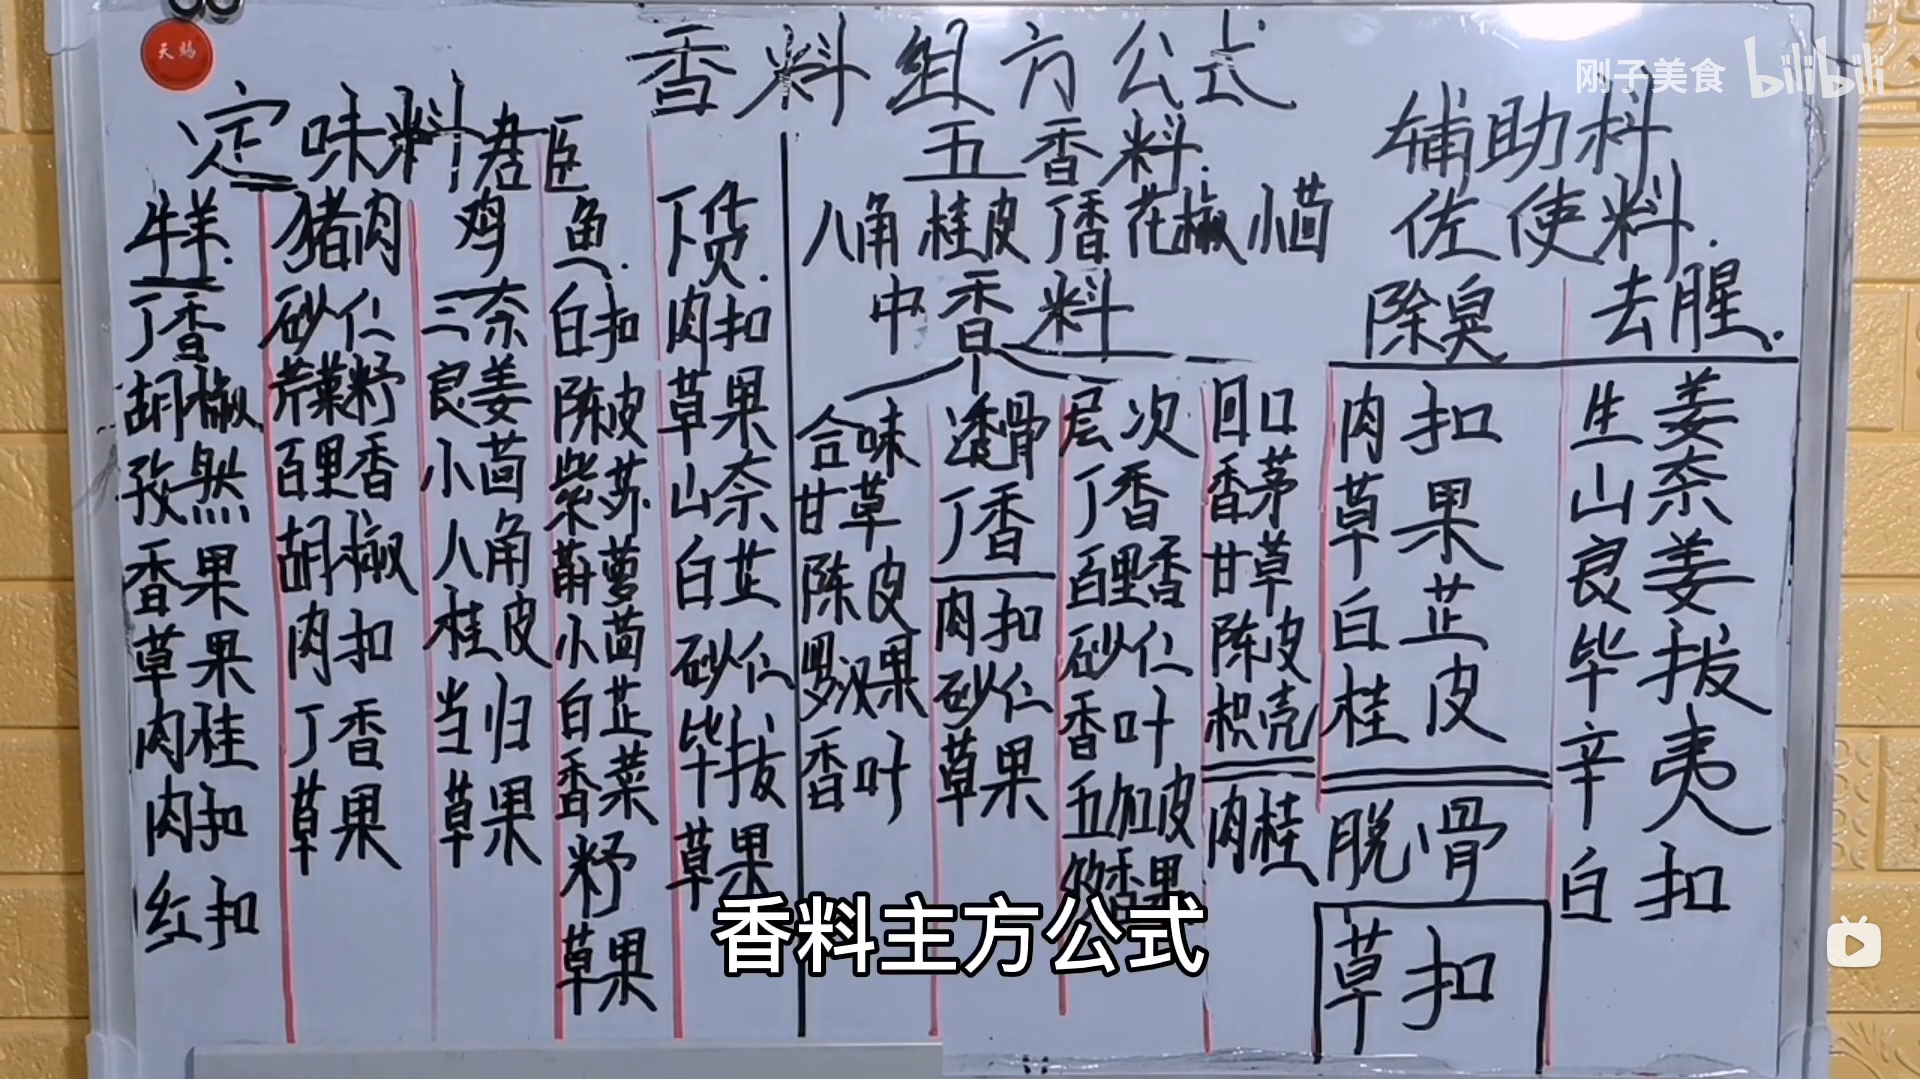 天赐
香料组方公式
刚子美食 bilibili
定味料君臣
牛羊.
丁香
胡椒
孜然
香果
草果
肉桂
肉扣
红扣
猪肉
砂仁
荠菜籽
百里香
胡椒
肉扣
丁香
草果
鸡
三奈
良姜
小茴
八角
桂皮
当归
草果
鱼.
白扣
陈皮
紫苏
小茴
白芷
香菜
籽
草果
下货.
肉扣
草果
山奈
白芷
砂仁
毕拔
草果
五香料.
八角 桂皮 丁香 花椒 小茴
中香料
合味
甘草
陈皮
罗汉果
香叶
透骨
丁香
肉扣
砂仁
草果
层次
丁香
百里香
砂仁
香叶
五加皮
香果
回口
香茅
甘草
陈皮
枳壳
肉桂
辅助料
佐使料.
除臭
肉扣
草果
白芷
桂皮
脱骨
草扣
去腥.
生姜
山奈
良姜
毕拔
辛夷
白扣
香料主方公式